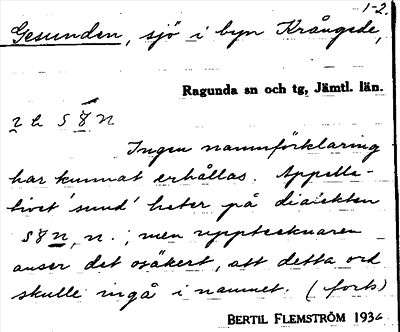 1-2.
Gesunden, sjö i byn Krångede,
Ragunda sn och tg, Jämtl. län.
Ingen namnförklaring
har kunnat erhållas. Appella-
tivet 'sund' heter på dialekten
n.; men upptecknaren
anser det osäkert, att detta ord
skulle ingå i namnet. (forts)
BERTIL FLEMSTRÖM 1936